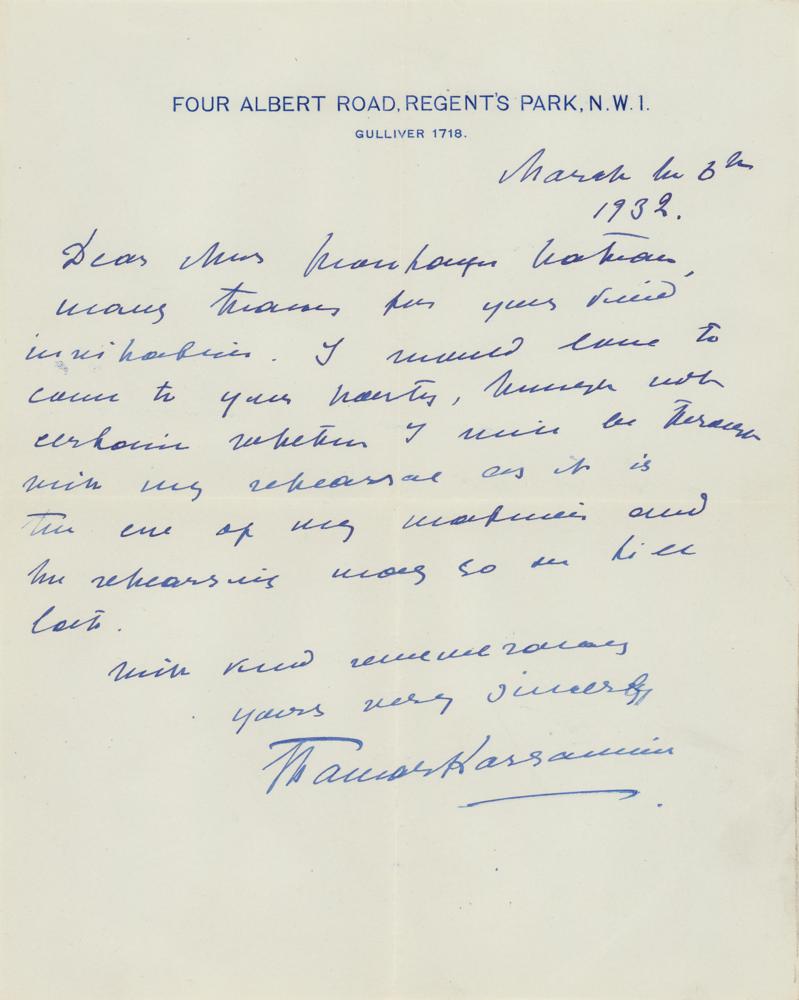 FOUR ALBERT ROAD, REGENT'S PARK, N.W.1.
GULLIVER 1718.
March the 6th
1932.
Dear Mrs Montagu Nathan,
many thanks for your kind
invitation. I would love to
come to your party, but not
certain whether I will be through
with my rehearsal as it is
the eve of my matinee and
the rehearsing may go on till
late.
With kind
yours very sincerely
Thamar Karsavina